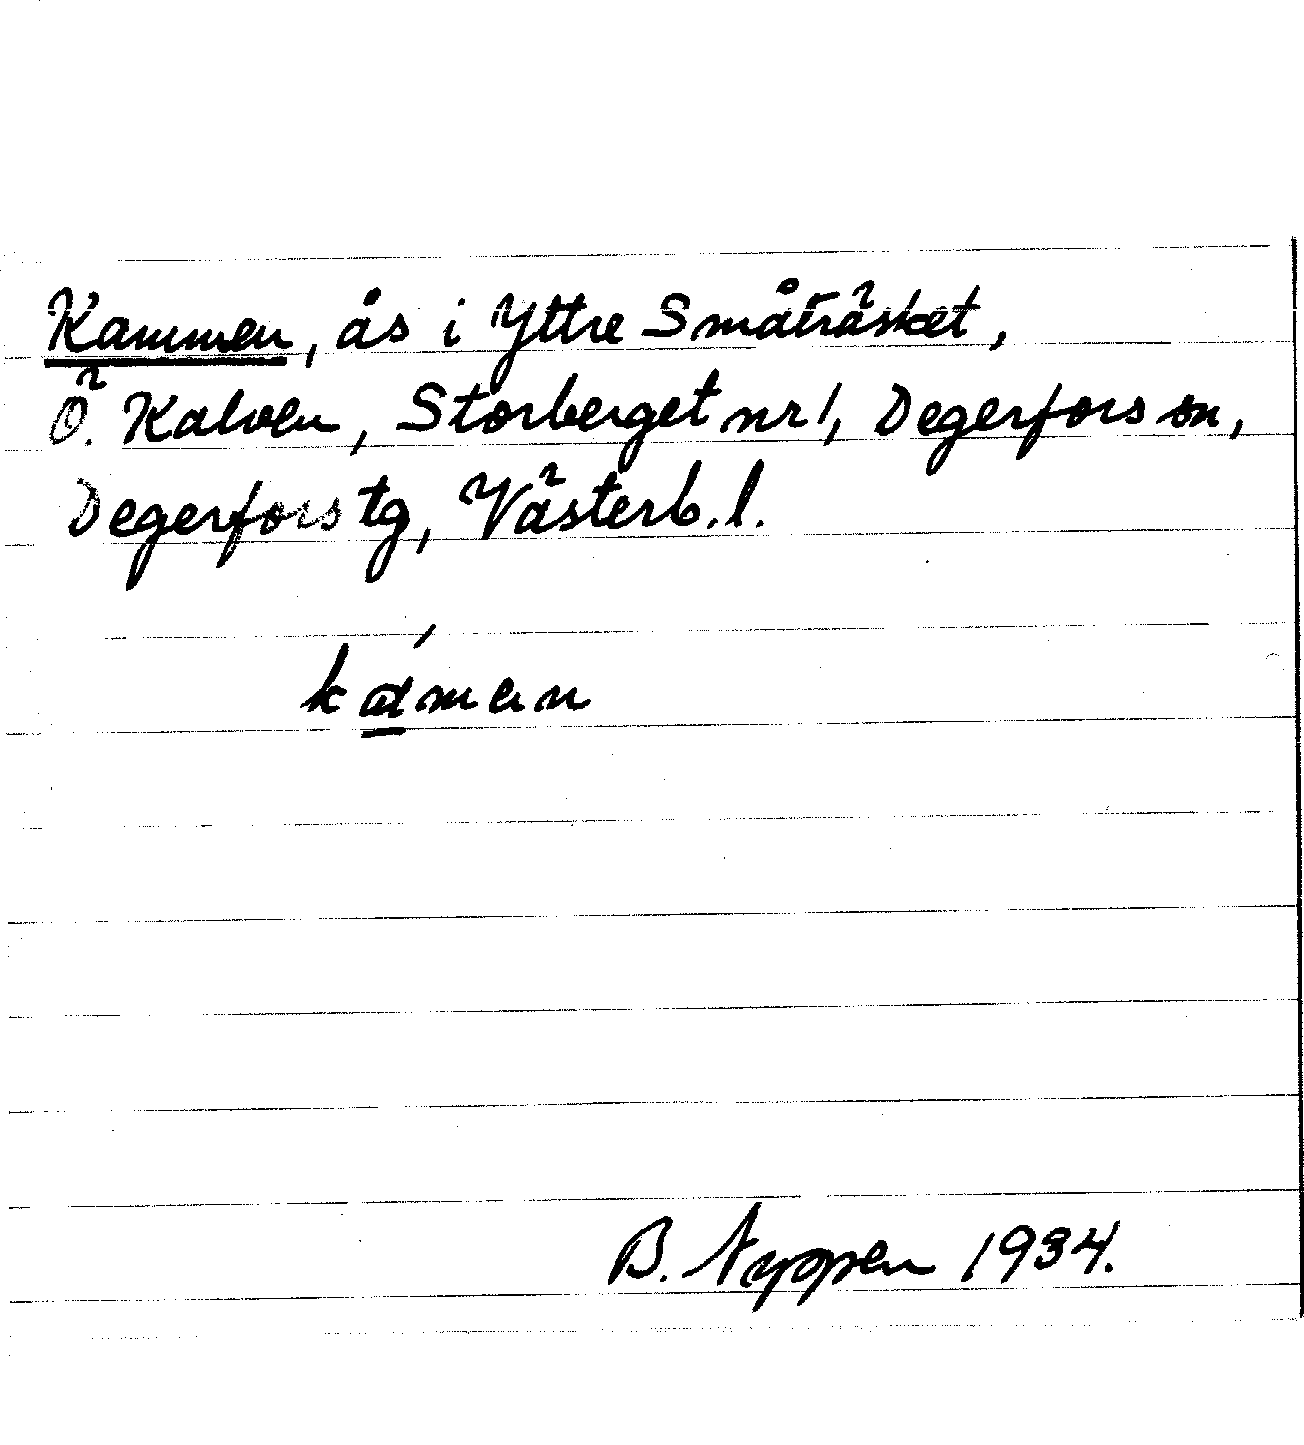 Kammen, ås i Yttre Småträsket,
Ö. Kalven, Storberget nr 1, Degerfors sn,
Degerfors tg, Västerb. l.
ká̱men
B. Nyppen 1934.